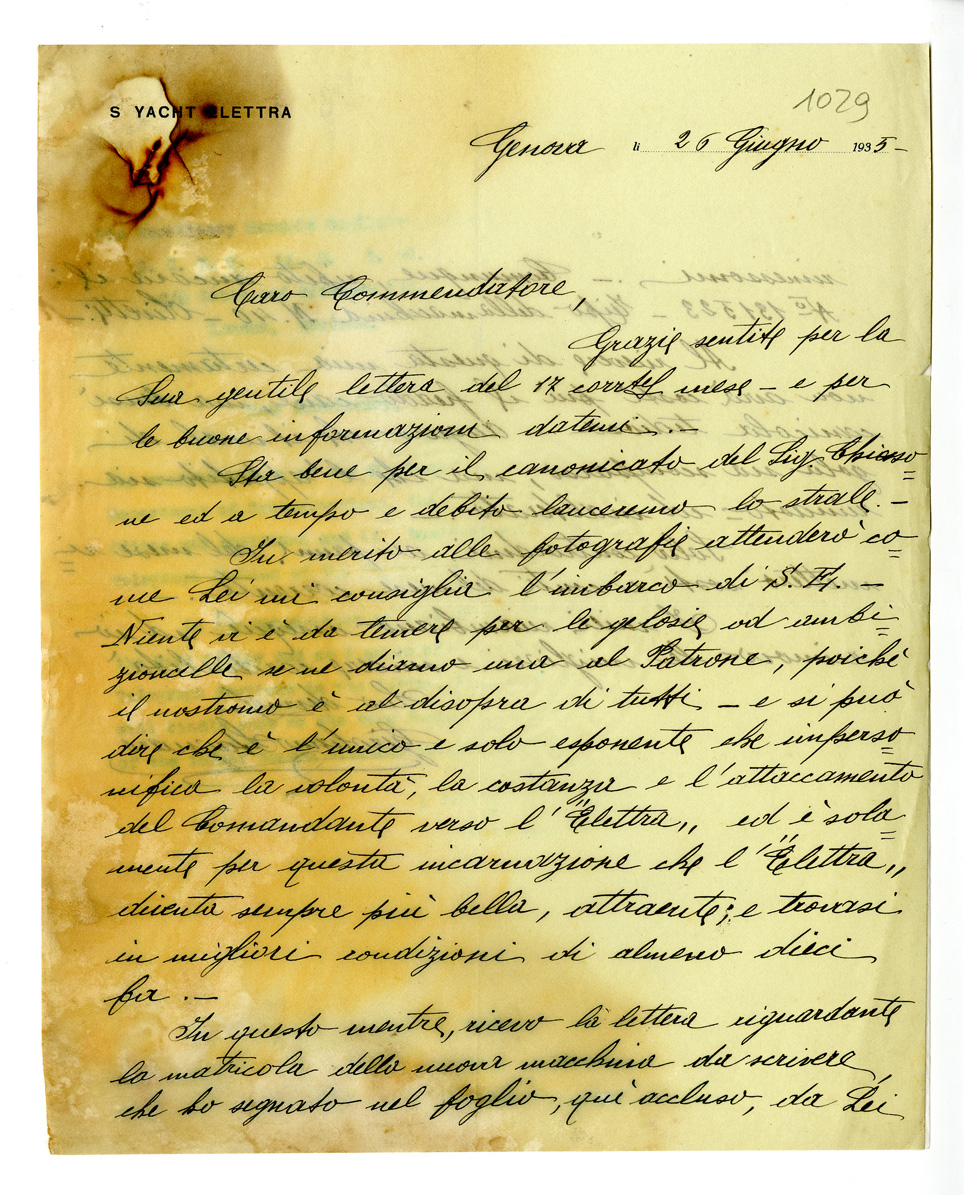 1029
S YACHT ELETTRA
Genova li 26 Giugno 1935-
Caro Commendatore,
Grazie sentite per la
Sua gentile lettera del 17 corrte mese - e per
le buone informazioni datemi.-
Sta bene per il canonicato del Sig. Chiaso=
ne ed a tempo e debito lanceremo lo strale.-
In merito alle fotografie attenderò co=
me Lei mi consiglia l'imbarco di S.E. -
Niente vi è da temere per le gelosie od ambi=
zioncelle se ne diamo una al Patrone, poichè
il nostromo è al disopra di tutti - e si può
dire che è l'unico e solo esponente che imperso=
nifica la volontà, la costanza e l'attaccamento
del Comandante verso l'"Elettra,, ed è sola=
mente per questa incarnazione che l'"Elettra,,
diventa sempre più bella, attraente; e trovasi
in migliori condizioni di almeno dieci
fa.-
In questo mentre, ricevo la lettera riguardante
la matricola della nuova macchina da scrivere,
che ho segnato nel foglio, quì accluso, da Lei